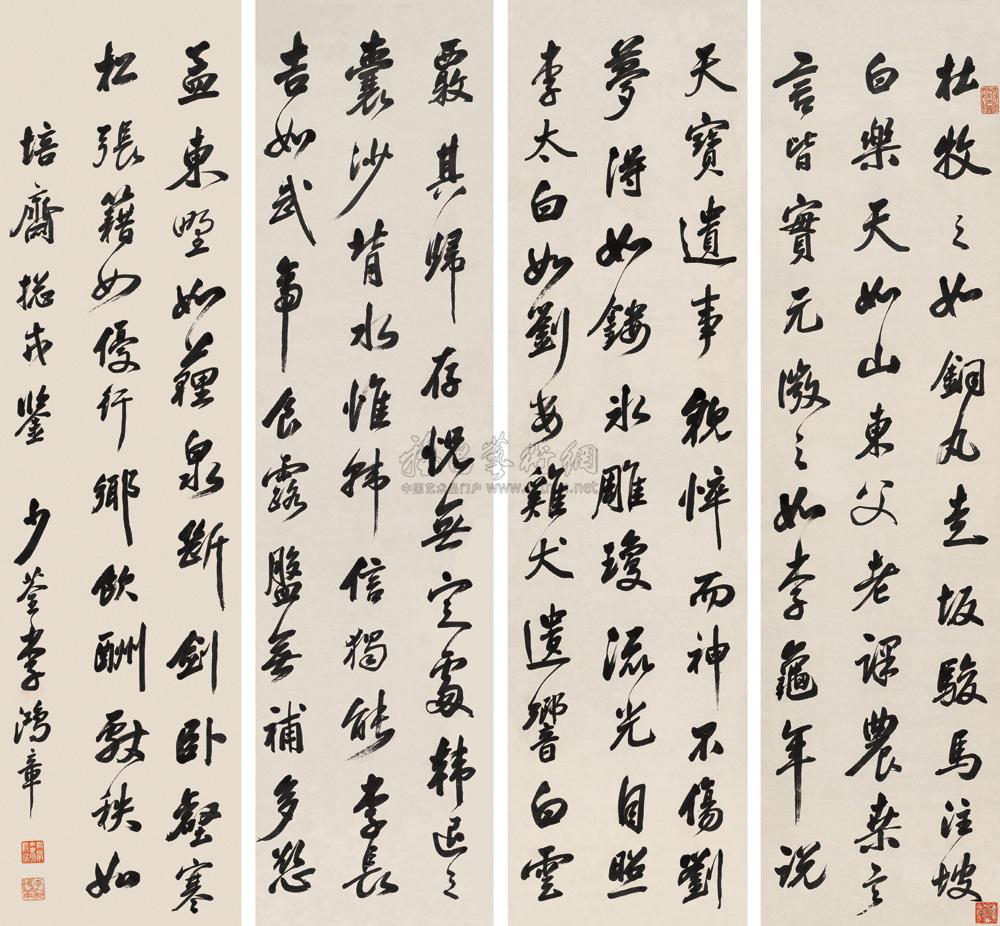 杜牧之如銅丸走坂駿馬注坡
白樂天如山東父老課農桑言
言皆實元微之如李龜年說
天寶遺事貌悴而神不傷劉
夢得如鏤冰雕瓊流光自照
李太白如劉安雞犬遺響白雲
覈其歸存恍無定處韓退之
囊沙背水惟韓信獨能李長
吉如武帝食露盤無補多慾
孟東野如薶泉斷劍臥壑寒
松張籍如優行鄉飲酬獻秩如
培齋揔戎鑒 少荃李鴻章
中国艺术品门户 www.